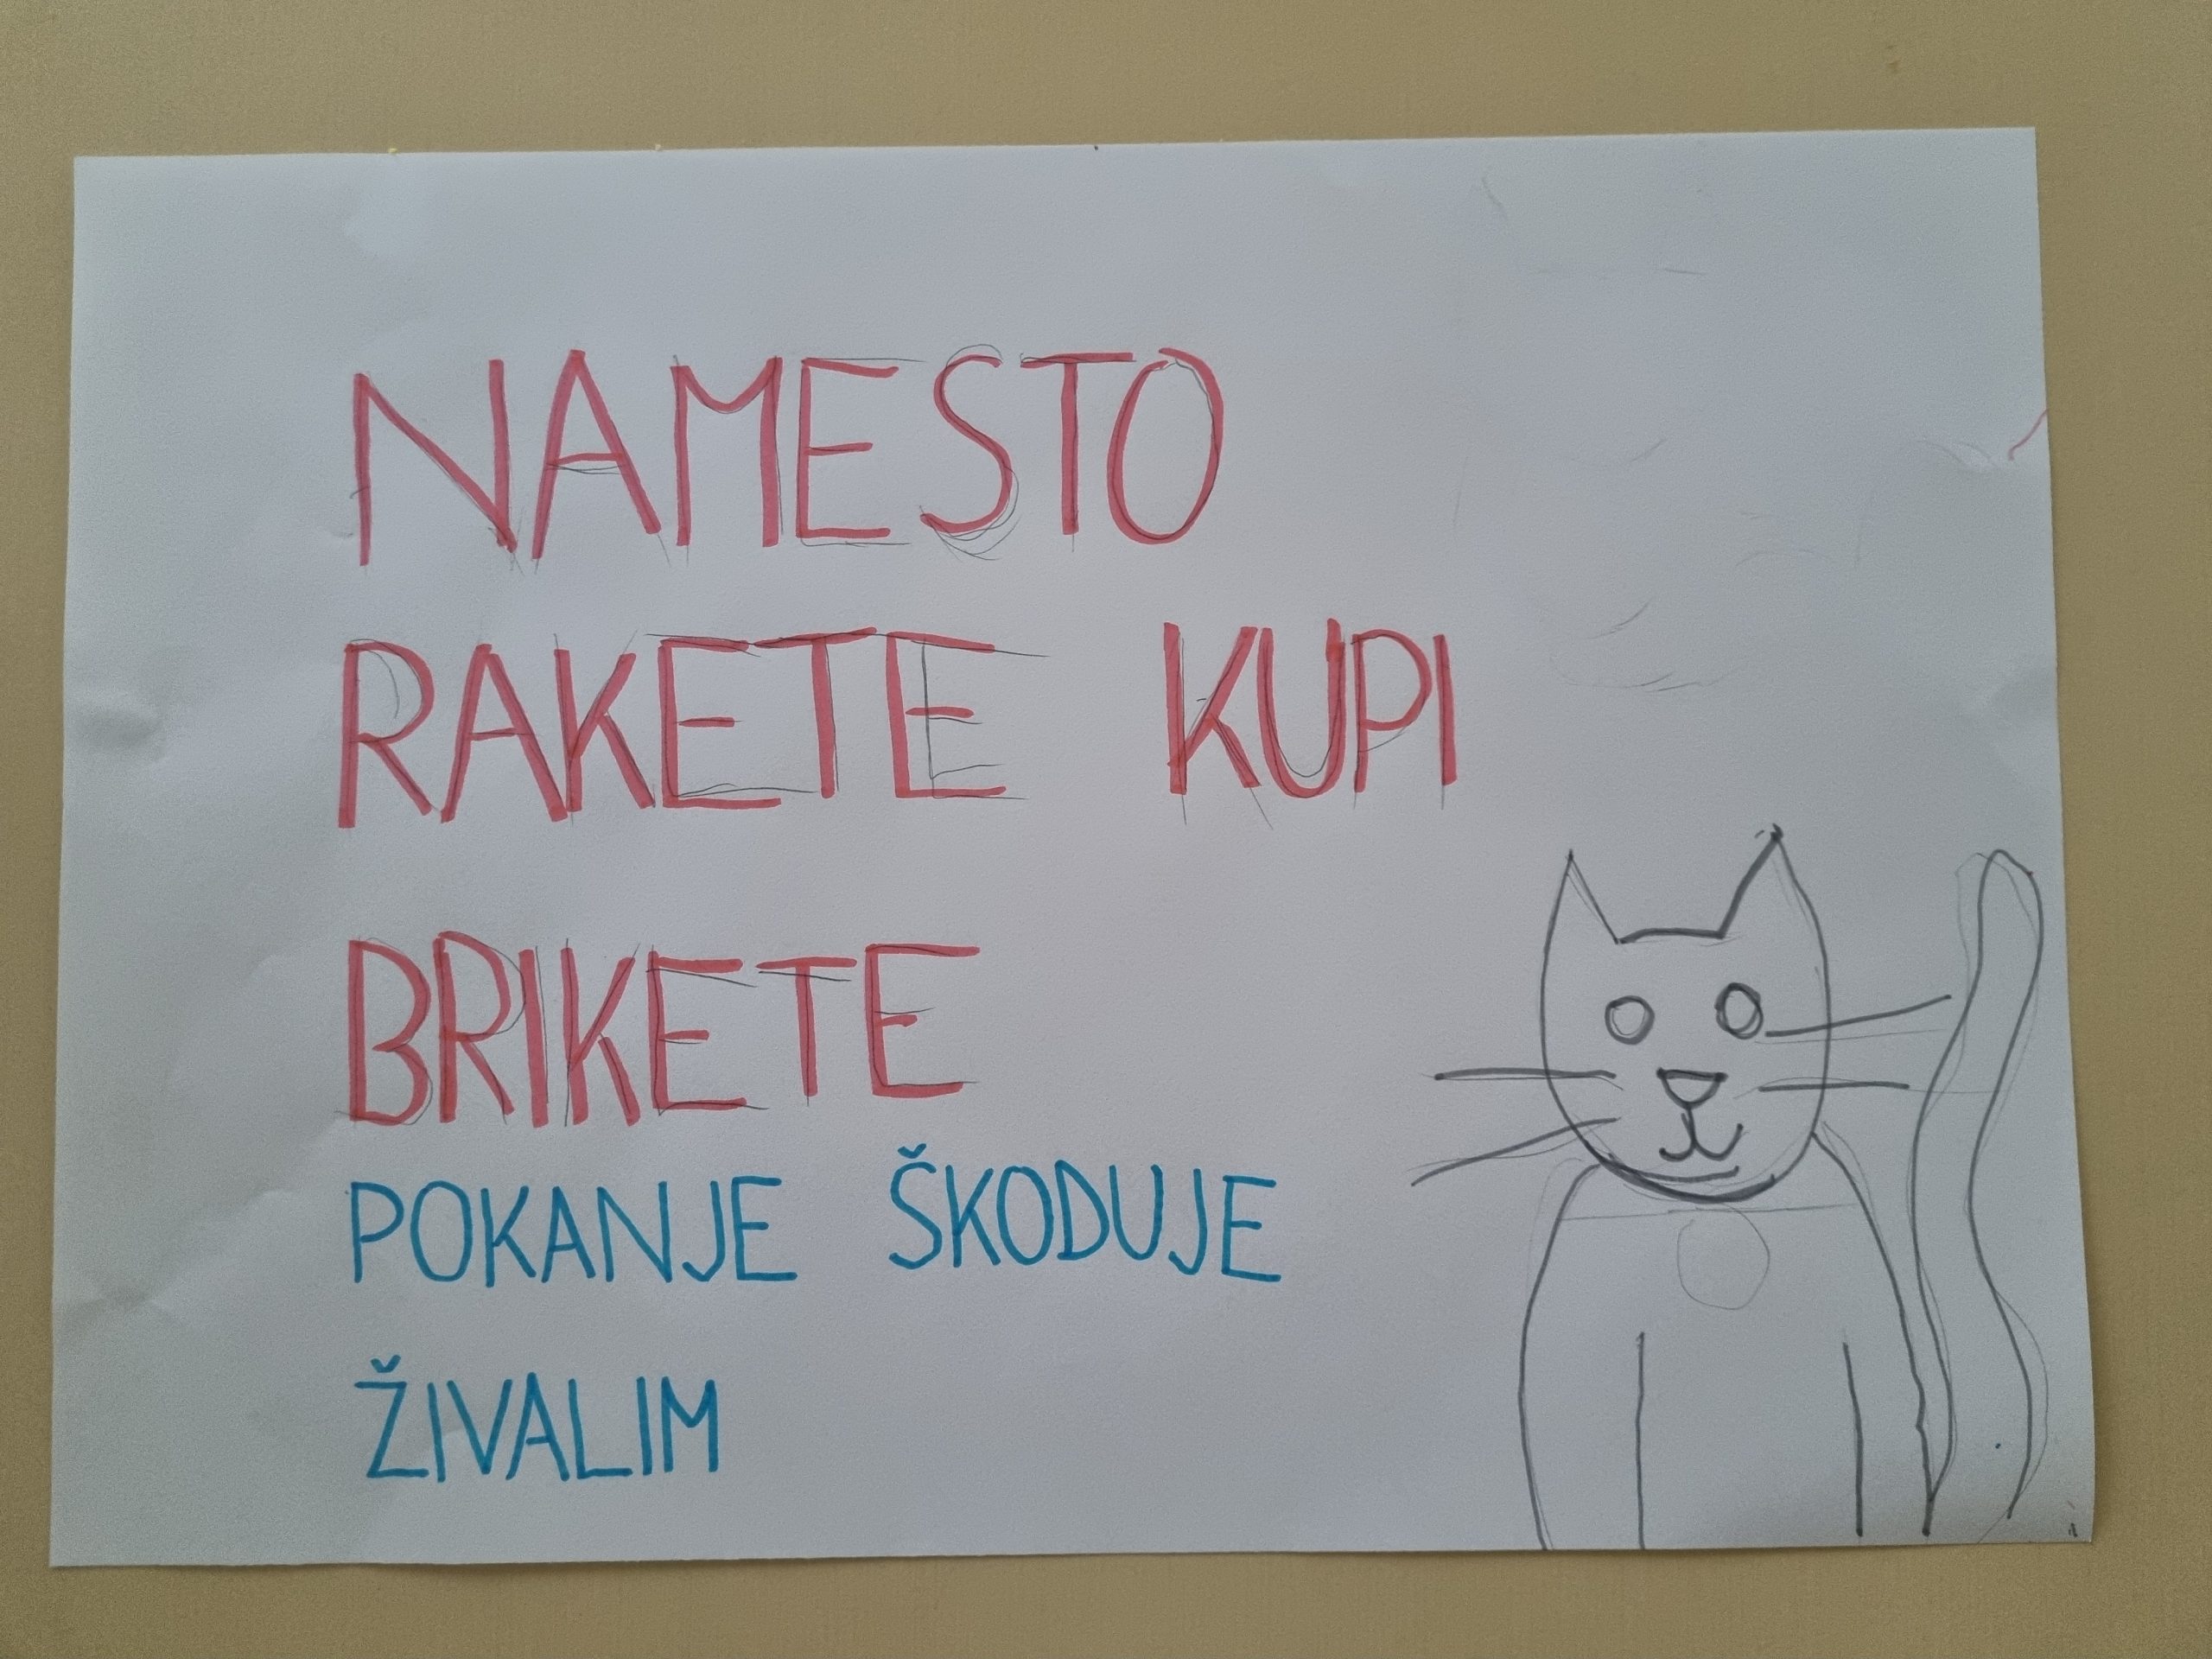 NAMESTO
RAKETE KUPI
BRIKETE
POKANJE ŠKODUJE
ŽIVALIM